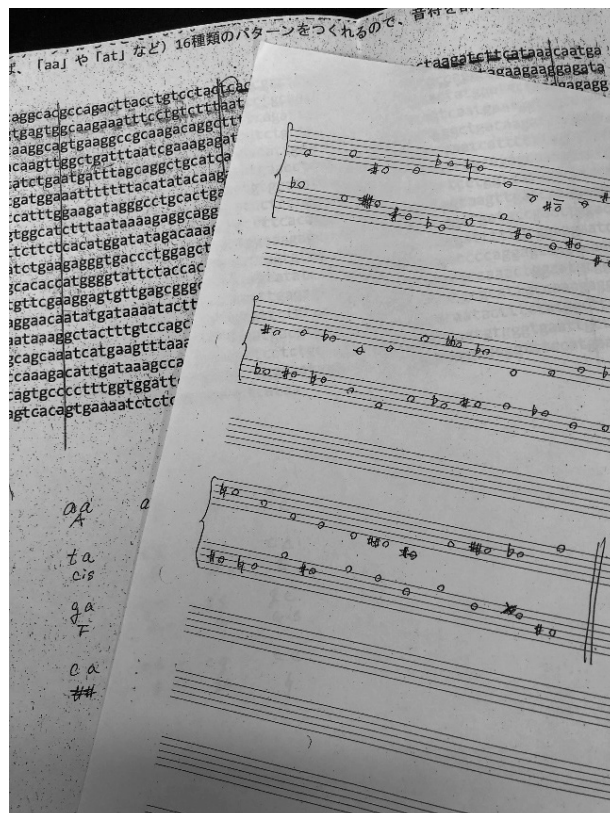 「aa」や「at」など）16種類のパターンをつくれるので、音符を
taagatcttcataaacaatga
tagaagaaggagata
aggcacgccagacttacctgtcctactcac
gtgagtggcaagaaatttcctgtctttaat
aaaggcagtgaaggccgcaagacaggcttt
acaagttggctgatttaatcgaaagagat
atctgaatgatttagcaggctgcatca
gatggaaatttttttacatatacaag
ccatttggaagatagggcctgcactga
gtggcatctttaataaaagaggcagg
tcttctcacatggatatagacaaag
atctgaagagggtgaccctggagct
gcacaccatggggtattctaccac
tgttcgaaggagtgttgagcgggc
aggaacaatatgataaaatactt
aataaaggctactttgtccagc
gcagcaaatcatgaagtttaaa
ccaaagacattgataaagcca
cagtgcccctttggtggatt
agtcacagtgaaaatctctc
aa a
A
ta
cis
ga
F
ca